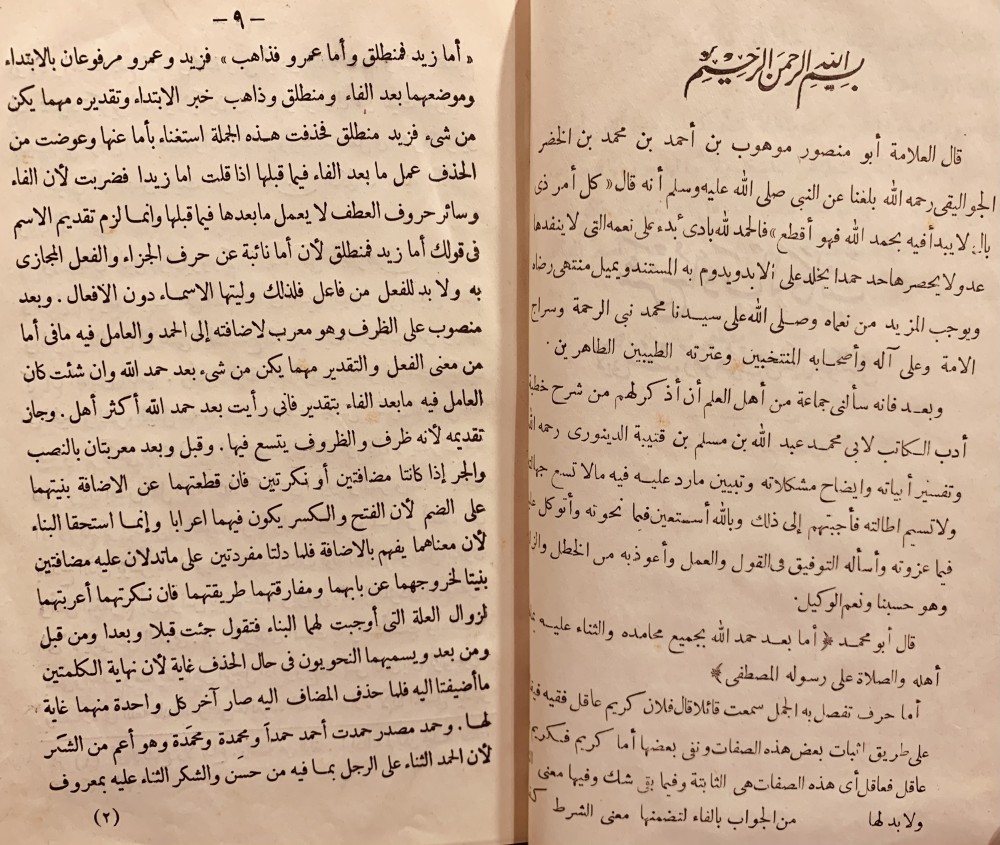 بسم الله الرحمن الرحيم
قال العلامة أبو منصور موهوب بن أحمد بن محمد بن الخضر
الجواليقى رحمه الله بلغنا عن النبى صلى الله عليه وسلم أنه قال «كل أمر ذى
بال لا يبدأ فيه بحمد الله فهو أقطع» فالحمد لله بادئ بدء على نعمه التى لا ينفدها
عد ولا يحصرها حد حمدا يخلد على الابد ويدوم به المستند ويميل منتهى رضاه
ويوجب المزيد من نعماه وصلى الله على سيدنا محمد نبى الرحمة وسراج
الامة وعلى آله وأصحابه المنتخبين وعترته الطيبين الطاهرين.
وبعد فانه سألنى جماعة من أهل العلم أن أذكر لهم من شرح خطبة
أدب الكاتب لابى محمد عبد الله بن مسلم بن قتيبة الدينورى رحمه
وتفسير أبياته وايضاح مشكلاته وتبيين مارد عليه فيه مالا تسع
ولا تسيم اطالته فأجبتهم إلى ذلك وبالله أستعين فيما نحوته وأتوكل
فيما عزوته وأسأله التوفيق فى القول والعمل وأعوذ به من الخطل
وهو حسبنا ونعم الوكيل.
قال أبو محمد ﴿أما بعد حمد الله بجميع محامده والثناء عليه
أهله والصلاة على رسوله المصطفى﴾
أما حرف تفصل به الجمل سمعت قائلا قال فلان كريم عاقل فقيه
على طريق اثبات بعض هذه الصفات ونفى بعضها أما كريم فكريم
عاقل فعاقل أى هذه الصفات هى الثابتة وفيما بقى شك وفيها معنى
ولا بد لها من الجواب بالفاء لتضمنها معنى الشرط
— ٩ —
«أما زيد فمنطلق وأما عمرو فذاهب» فزيد وعمرو مرفوعان بالابتداء
وموضعهما بعد الفاء ومنطلق وذاهب خبر الابتداء وتقديره مهما يكن
من شىء فزيد منطلق فحذفت هذه الجملة استغناء بأما عنها وعوضت من
الحذف عمل ما بعد الفاء فيما قبلها اذا قلت اما زيدا فضربت لأن الفاء
وسائر حروف العطف لا يعمل ما بعدها فيما قبلها وانما لزم تقديم الاسم
فى قولك أما زيد فمنطلق لأن أما نائبة عن حرف الجزاء والفعل المجازى
به ولا بد للفعل من فاعل فلذلك وليتها الاسماء دون الافعال. وبعد
منصوب على الظرف وهو معرب لاضافته إلى الحمد والعامل فيه مافى أما
من معنى الفعل والتقدير مهما يكن من شىء بعد حمد الله وان شئت كان
العامل فيه مابعد الفاء بتقدير فانى رأيت بعد حمد الله أكثر أهل. وجاز
تقديمه لأنه ظرف والظروف يتسع فيها. وقبل وبعد معربتان بالنصب
والجر إذا كانتا مضافتين أو نكرتين فان قطعتهما عن الاضافة بنيتهما
على الضم لأن الفتح والكسر يكون فيهما اعرابا وإنما استحقا البناء
لأن معناهما يفهم بالاضافة فلما دلتا مفردتين على ماتدلان عليه مضافتين
بنيتا لخروجهما عن بابهما ومفارقتهما طريقتهما فان نكرتهما أعربتهما
لزوال العلة التى أوجبت لهما البناء فتقول جئت قبلا وبعدا ومن قبل
ومن بعد ويسميهما النحويون فى حال الحذف غاية لأن نهاية الكلمتين
ماأضيفتا اليه فلما حذف المضاف اليه صار آخر كل واحدة منهما غاية
لها. وحمد مصدر حمدت أحمد حمداً ومحمِدة ومحمَدة وهو أعم من الشكر
لأن الحمد الثناء على الرجل بما فيه من حسن والشكر الثناء عليه بمعروف
(٢)